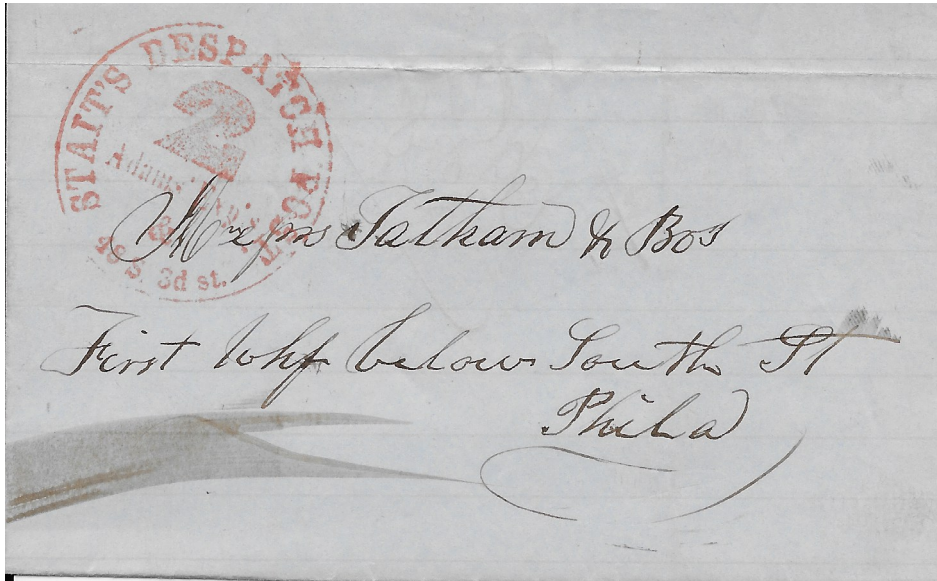 STAIT'S DESPATCH POST
2
Adams' Exp's
48 S. 3d st.
Messrs Tatham & Bos
First Whf below South St
Phila